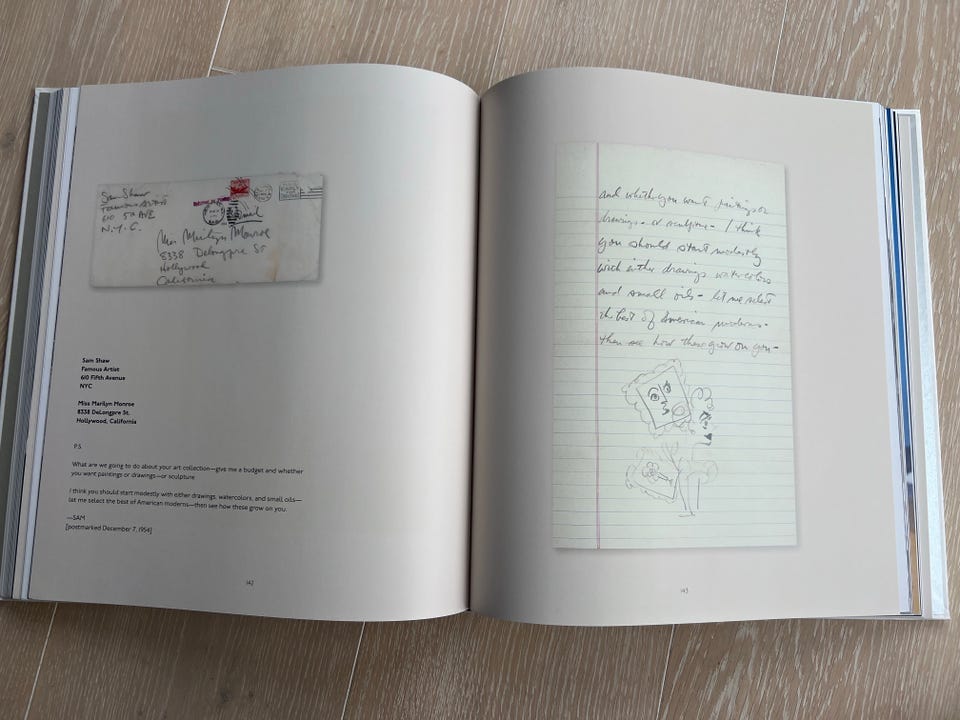 Sam Shaw
FAMOUS ARTIST
610 5th AVE
N.Y.C.
Miss Marilyn Monroe
8338 Delongpre St
Hollywood
California
Sam Shaw
Famous Artist
610 Fifth Avenue
NYC
Miss Marilyn Monroe
8338 DeLongpre St.
Hollywood, California
P.S.
What are we going to do about your art collection—give me a budget and whether
you want paintings or drawings—or sculpture
I think you should start modestly with either drawings, watercolors, and small oils—
let me select the best of American moderns—then see how these grow on you.
—SAM
[postmarked December 7, 1954]
142
and whether you want paintings or
drawings - or sculpture - I think
you should start modestly
with either drawings watercolors
and small oils - let me select
the best of American moderns -
then see how these grow on you -
143